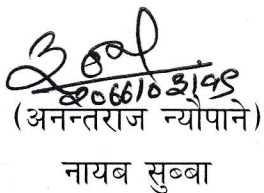 २०६६/०३/१५
(अनन्तराज न्यौपाने)
नायब सुब्बा